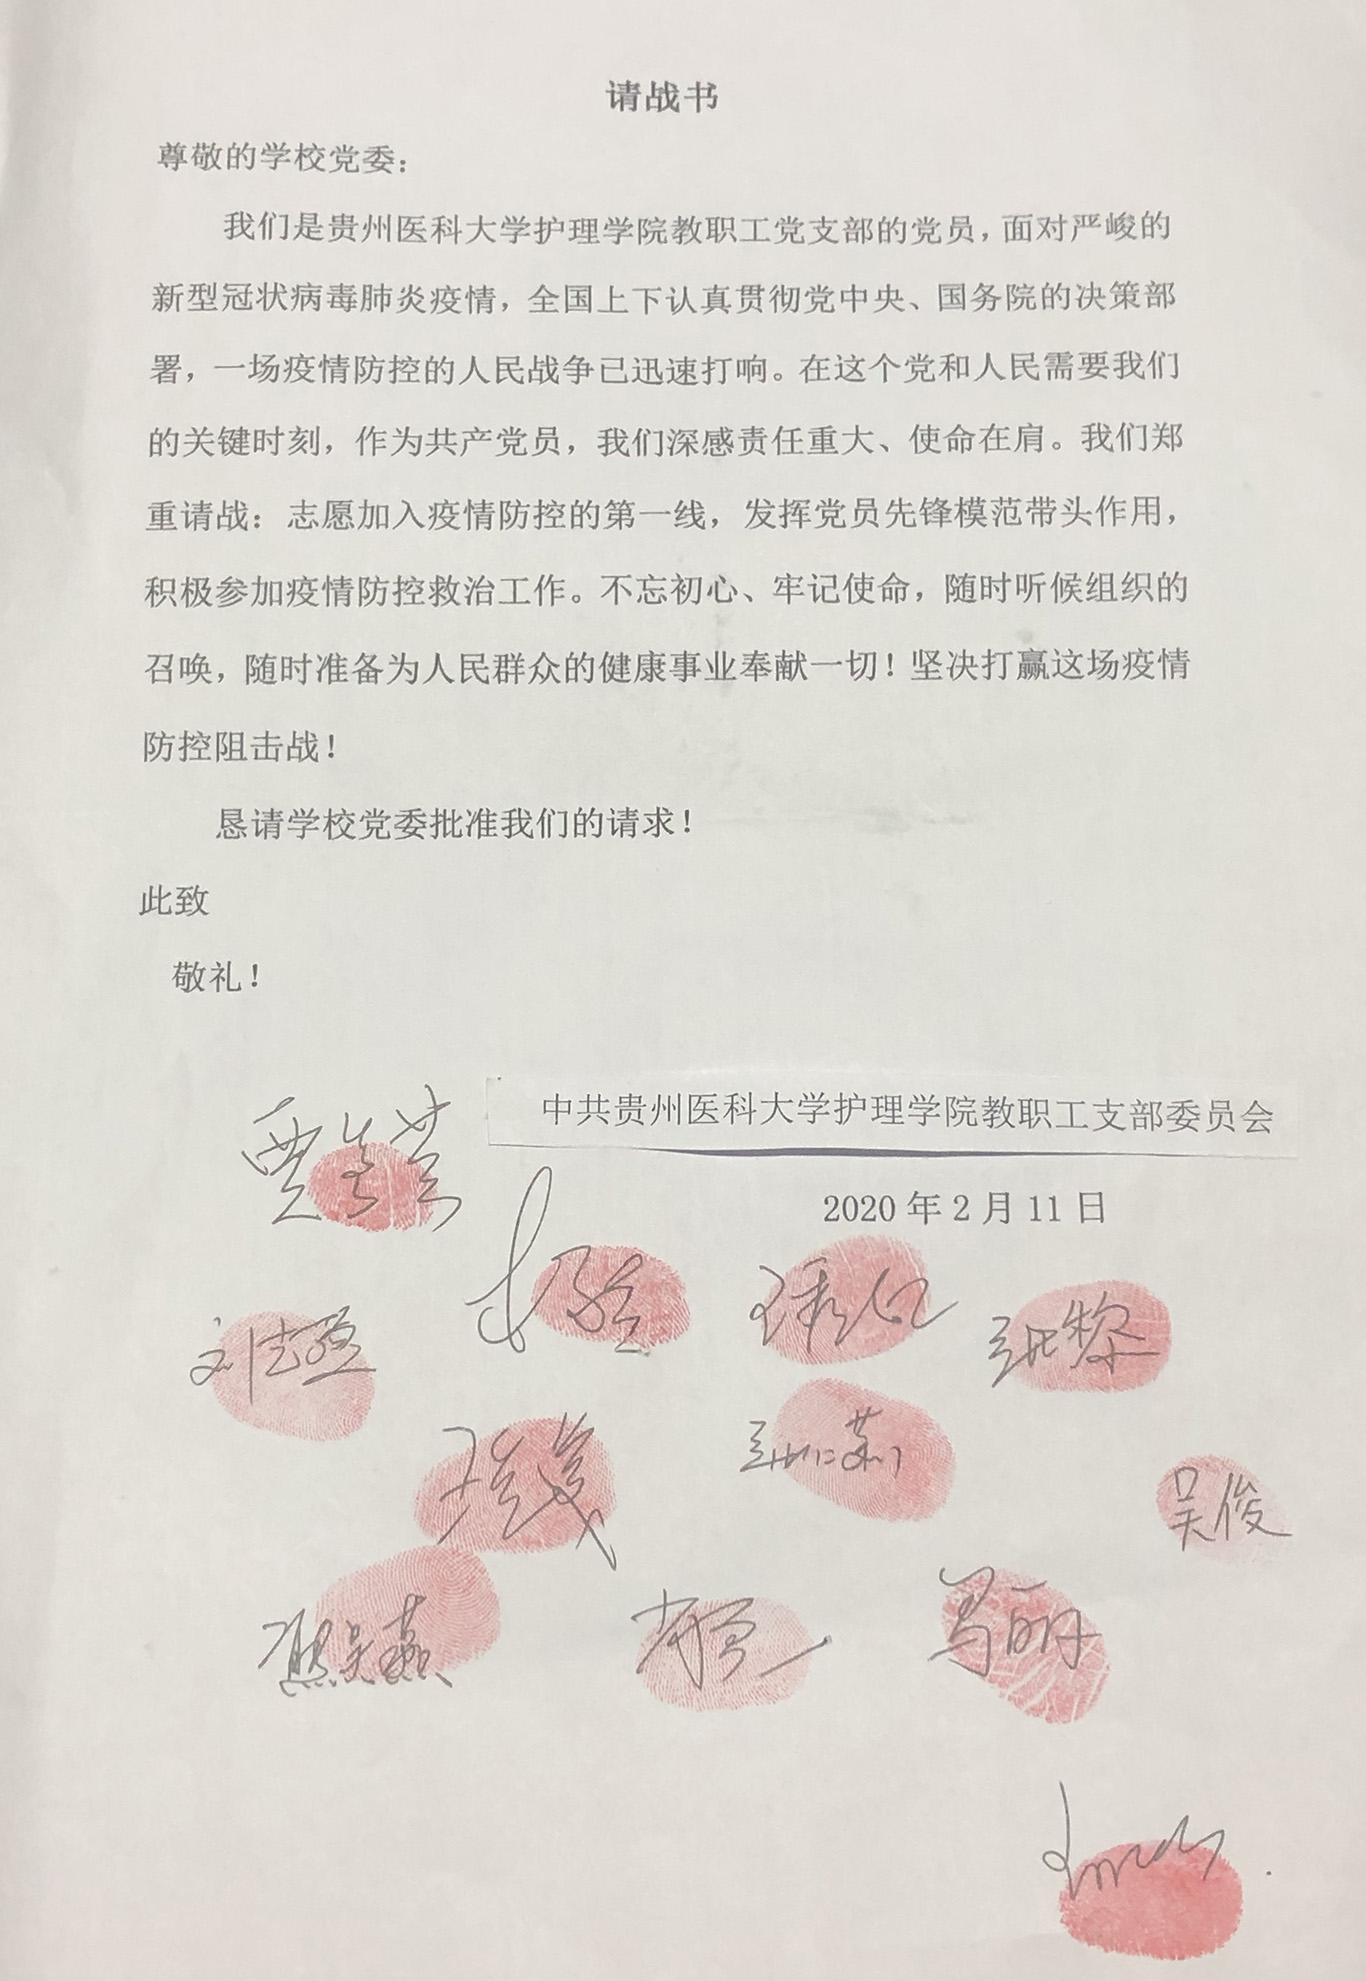 请战书
尊敬的学校党委：
我们是贵州医科大学护理学院教职工党支部的党员，面对严峻的
新型冠状病毒肺炎疫情，全国上下认真贯彻党中央、国务院的决策部
署，一场疫情防控的人民战争已迅速打响。在这个党和人民需要我们
的关键时刻，作为共产党员，我们深感责任重大、使命在肩。我们郑
重请战：志愿加入疫情防控的第一线，发挥党员先锋模范带头作用，
积极参加疫情防控救治工作。不忘初心、牢记使命，随时听候组织的
召唤，随时准备为人民群众的健康事业奉献一切！坚决打赢这场疫情
防控阻击战！
恳请学校党委批准我们的请求！
此致
敬礼！
中共贵州医科大学护理学院教职工支部委员会
2020年2月11日
吴俊
马丽